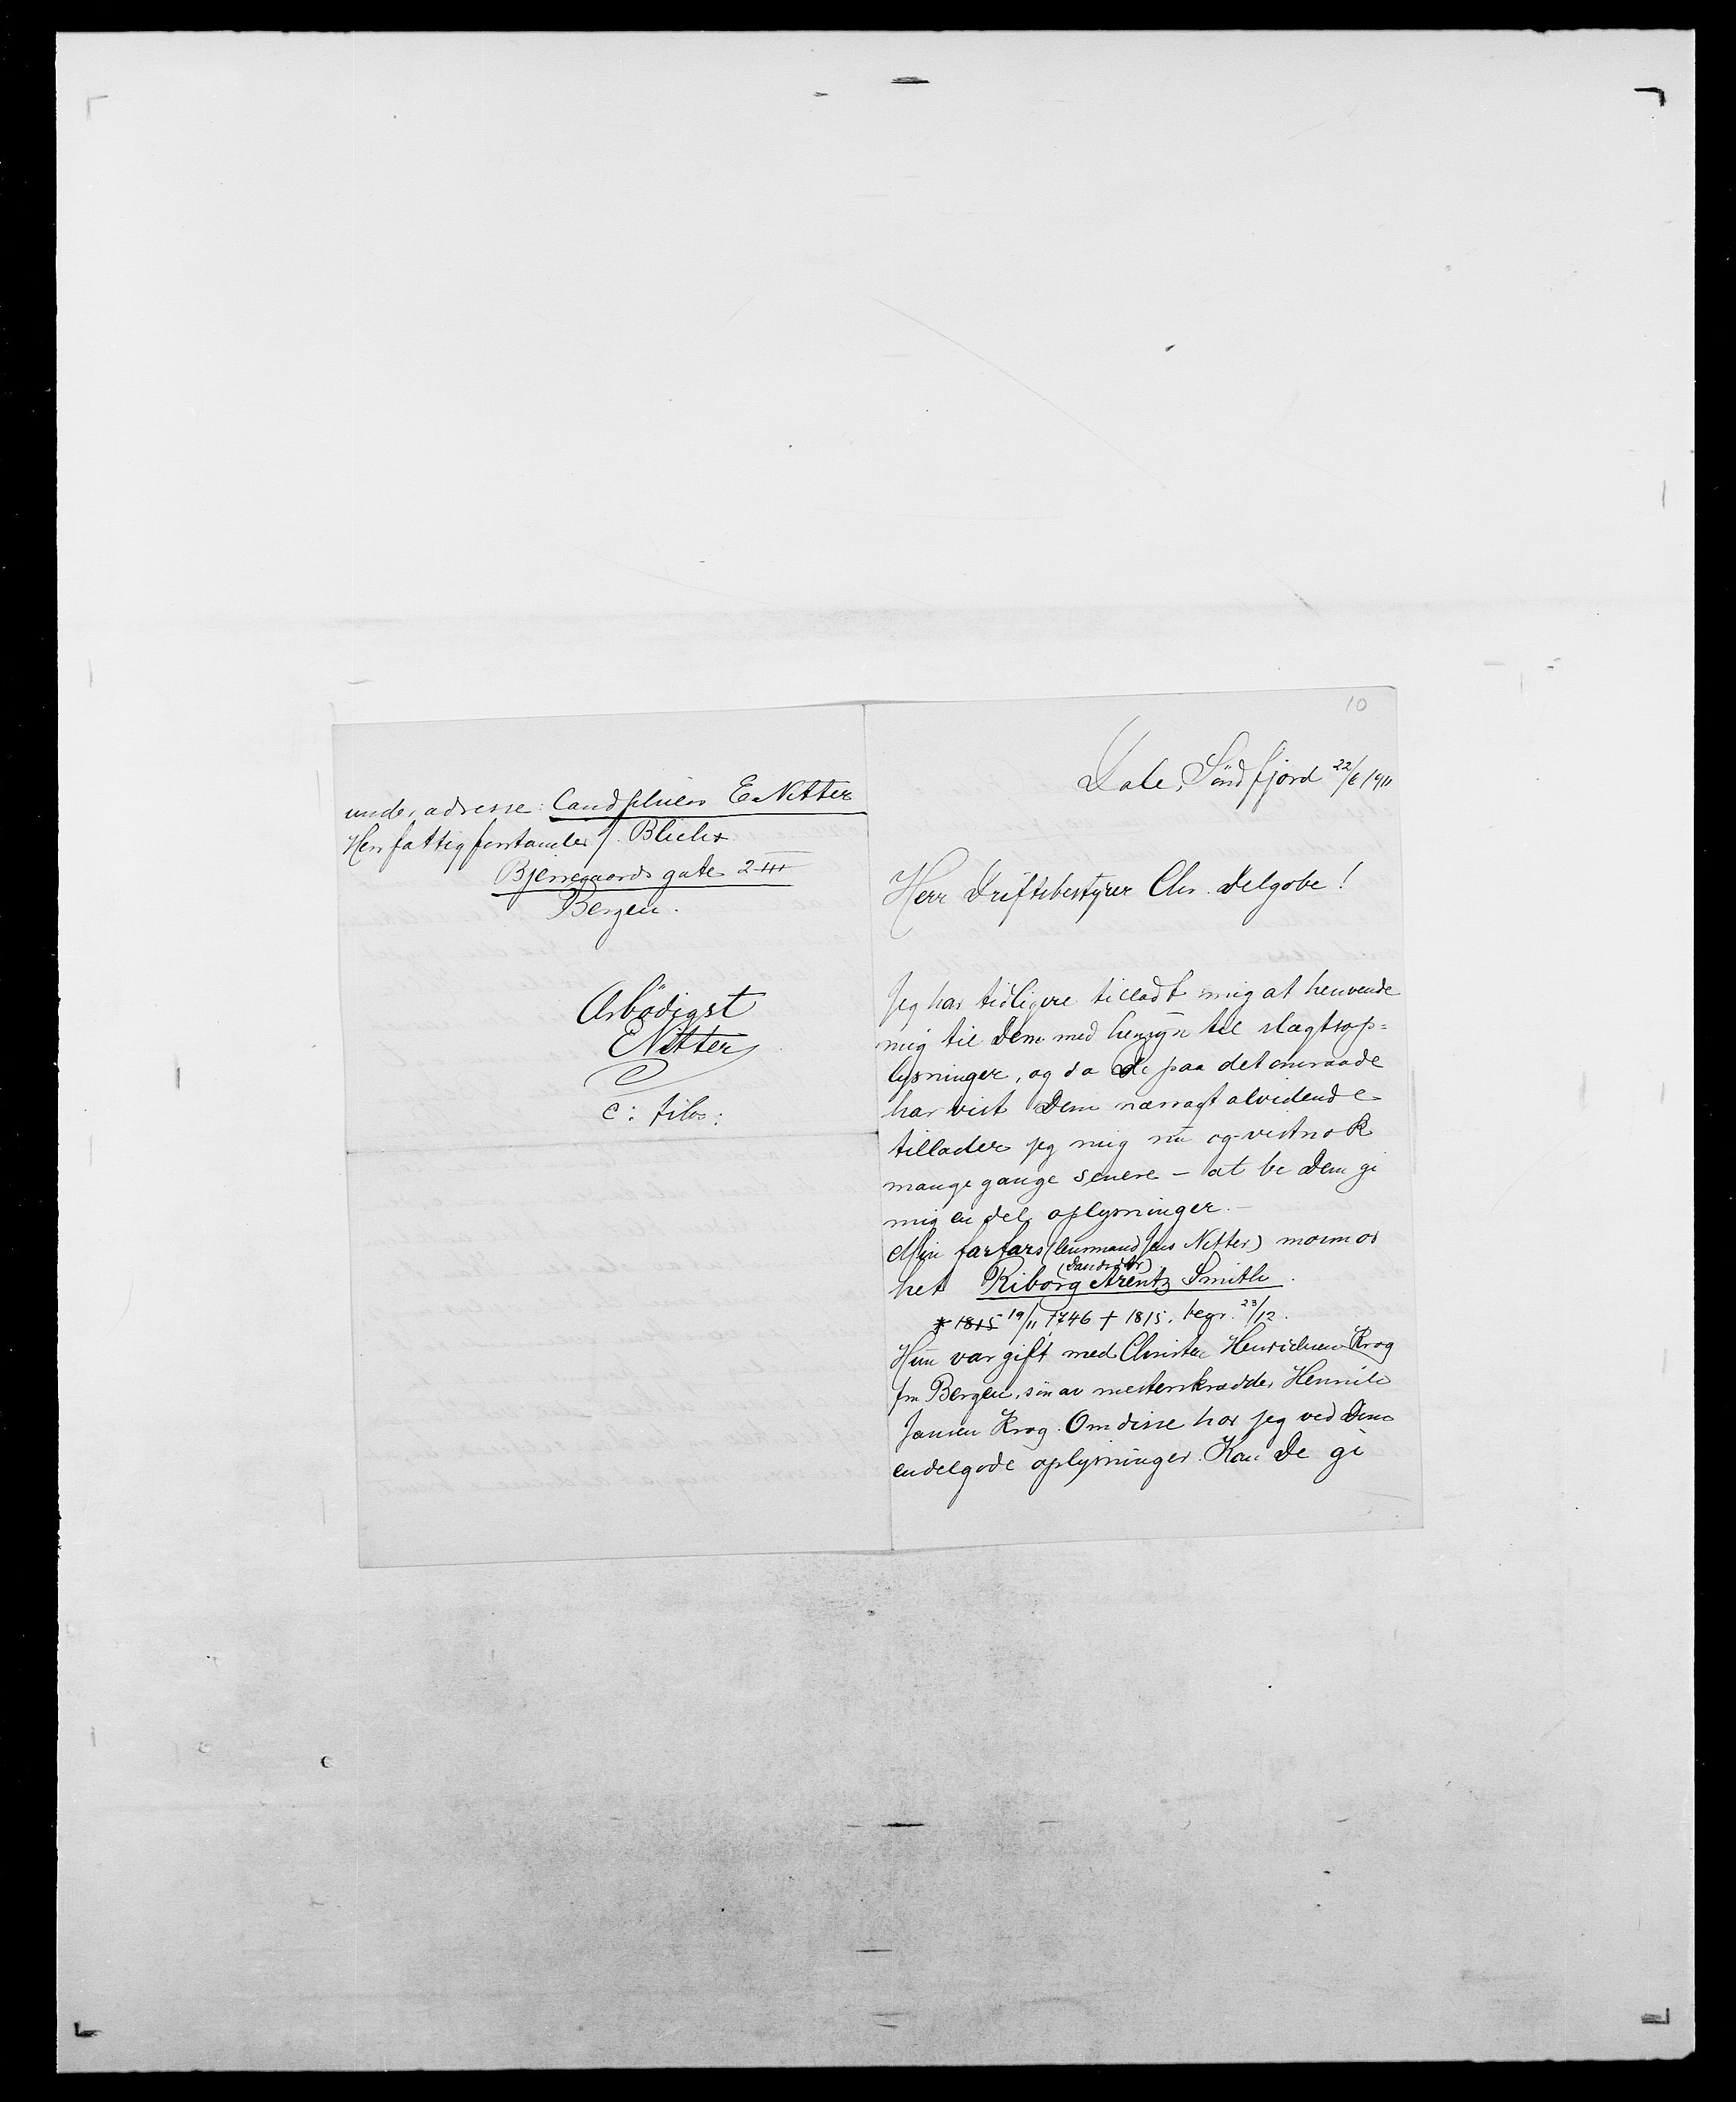 under adresse: Cand philos E Nitter
Herr fattigforstander J. Blichr
Bjerregaards gate 2 III
Bergen.
Ærbødigst
E Nitter
c: filos:
10
Dale, Söndfjord 22/6 1911
Herr Driftsbestyrer Chr. Delgobe!
Jeg har tidligere tilladt mig at henvende
mig til Dem med hensyn til slægtsop=
lysninger, og da De paa det omraade
har vist Dem næsragt alvidende
tillader jeg mig nu og vistnok
mange gange senere – at be Dem gi
mig en del oplysninger. –
Min farfars (lensmand Jens Nitter) mormor
het Riborg Arentz (Sandvedtr) Smith.
* 1815 19/11 1746 † 1815, begr. 23/12.
Hun var gift med Christen Henrichsen Krog
fra Bergen, søn av mesterskrædder Henrik
Jansen Krog. Om disse har jeg ved Dem
endel gode oplysninger. Kan De gi